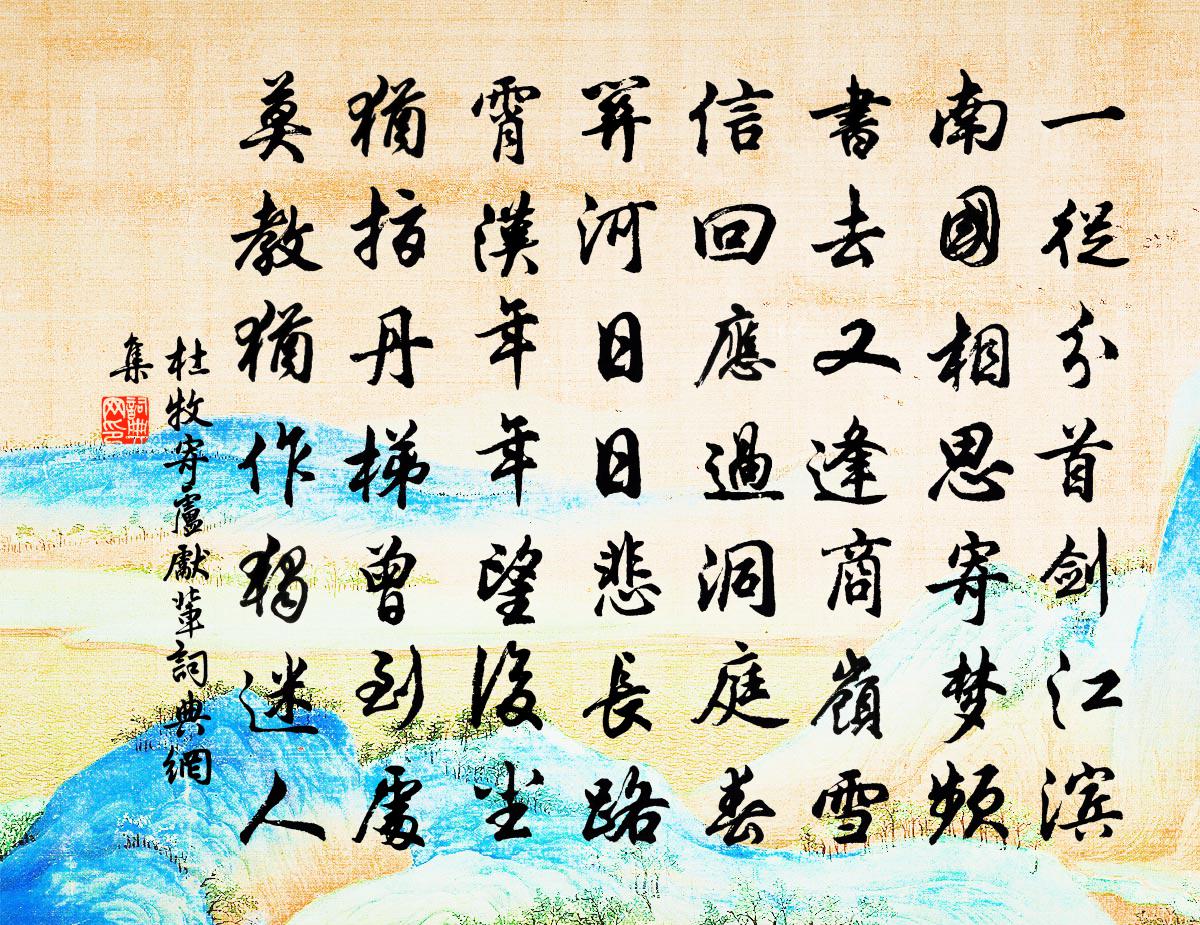 一從分首剑江滨
南國相思寄梦频
書去又逢商嶺雪
信回應過洞庭春
關河日日悲長路
霄漢年年望後尘
猶指丹梯曾到處
莫教猶作獨迷人
杜牧寄廬獻輩詞典網
集
詞典网印